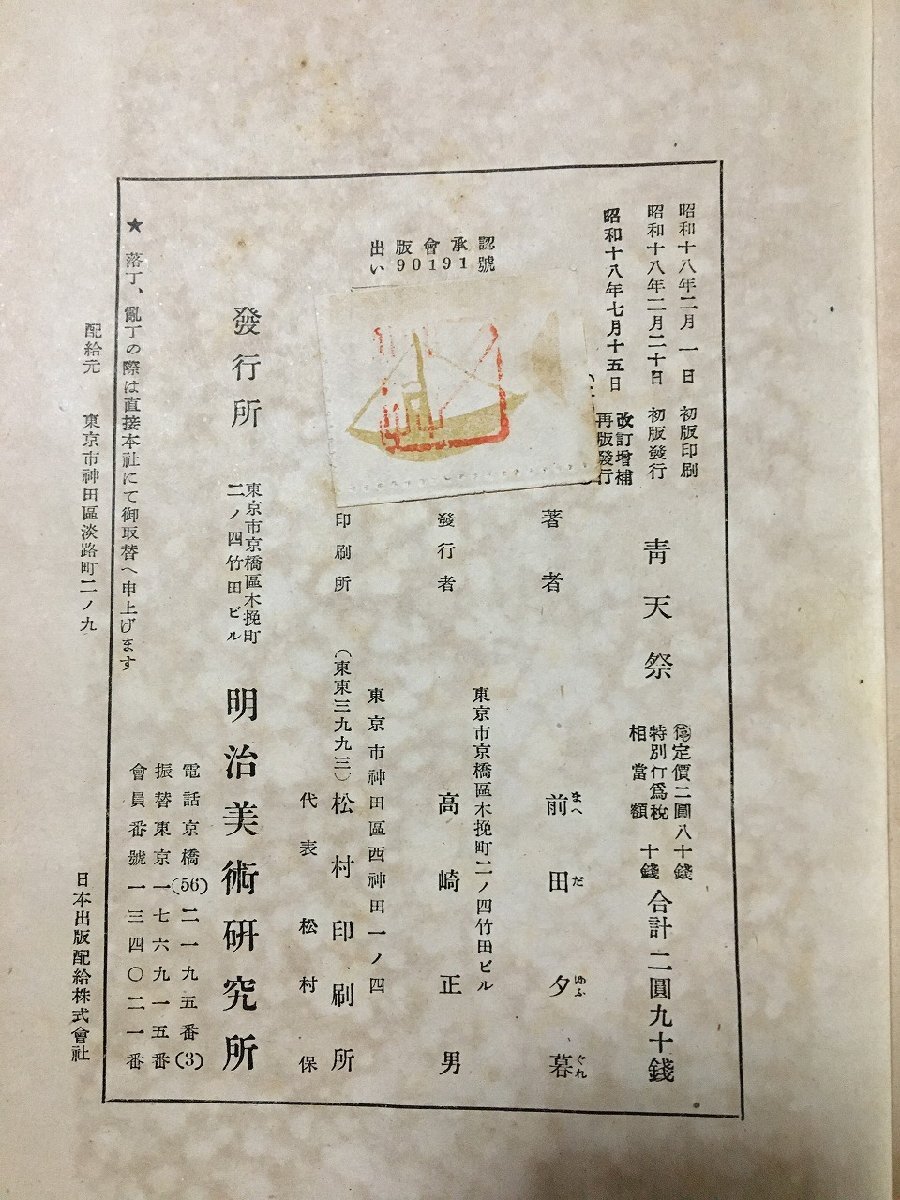 昭和十八年二月一日 初版印刷
昭和十八年二月二十日 初版發行
昭和十八年七月十五日 改訂增補再版發行
出版會承認
い90191號
靑天祭
㊝定價二圓八十錢
特別行爲稅相當額 十錢
合計二圓九十錢
著者 前田夕暮
まへ だ ゆふ ぐれ
發行者
東京市京橋區木挽町二ノ四竹田ビル
高崎正男
印刷所
東京市神田區西神田一ノ四
(東東三九九三)松村印刷所
代表 松村保
發行所
東京市京橋區木挽町
二ノ四竹田ビル
明治美術硏究所
電話京橋(56)二一九五番(3)
振替東京一七六九一五番
會員番號一三四〇二一番
★ 落丁、亂丁の際は直接本社にて御取替へ申上げます
配給元 東京市神田區淡路町二ノ九 日本出版配給株式會社